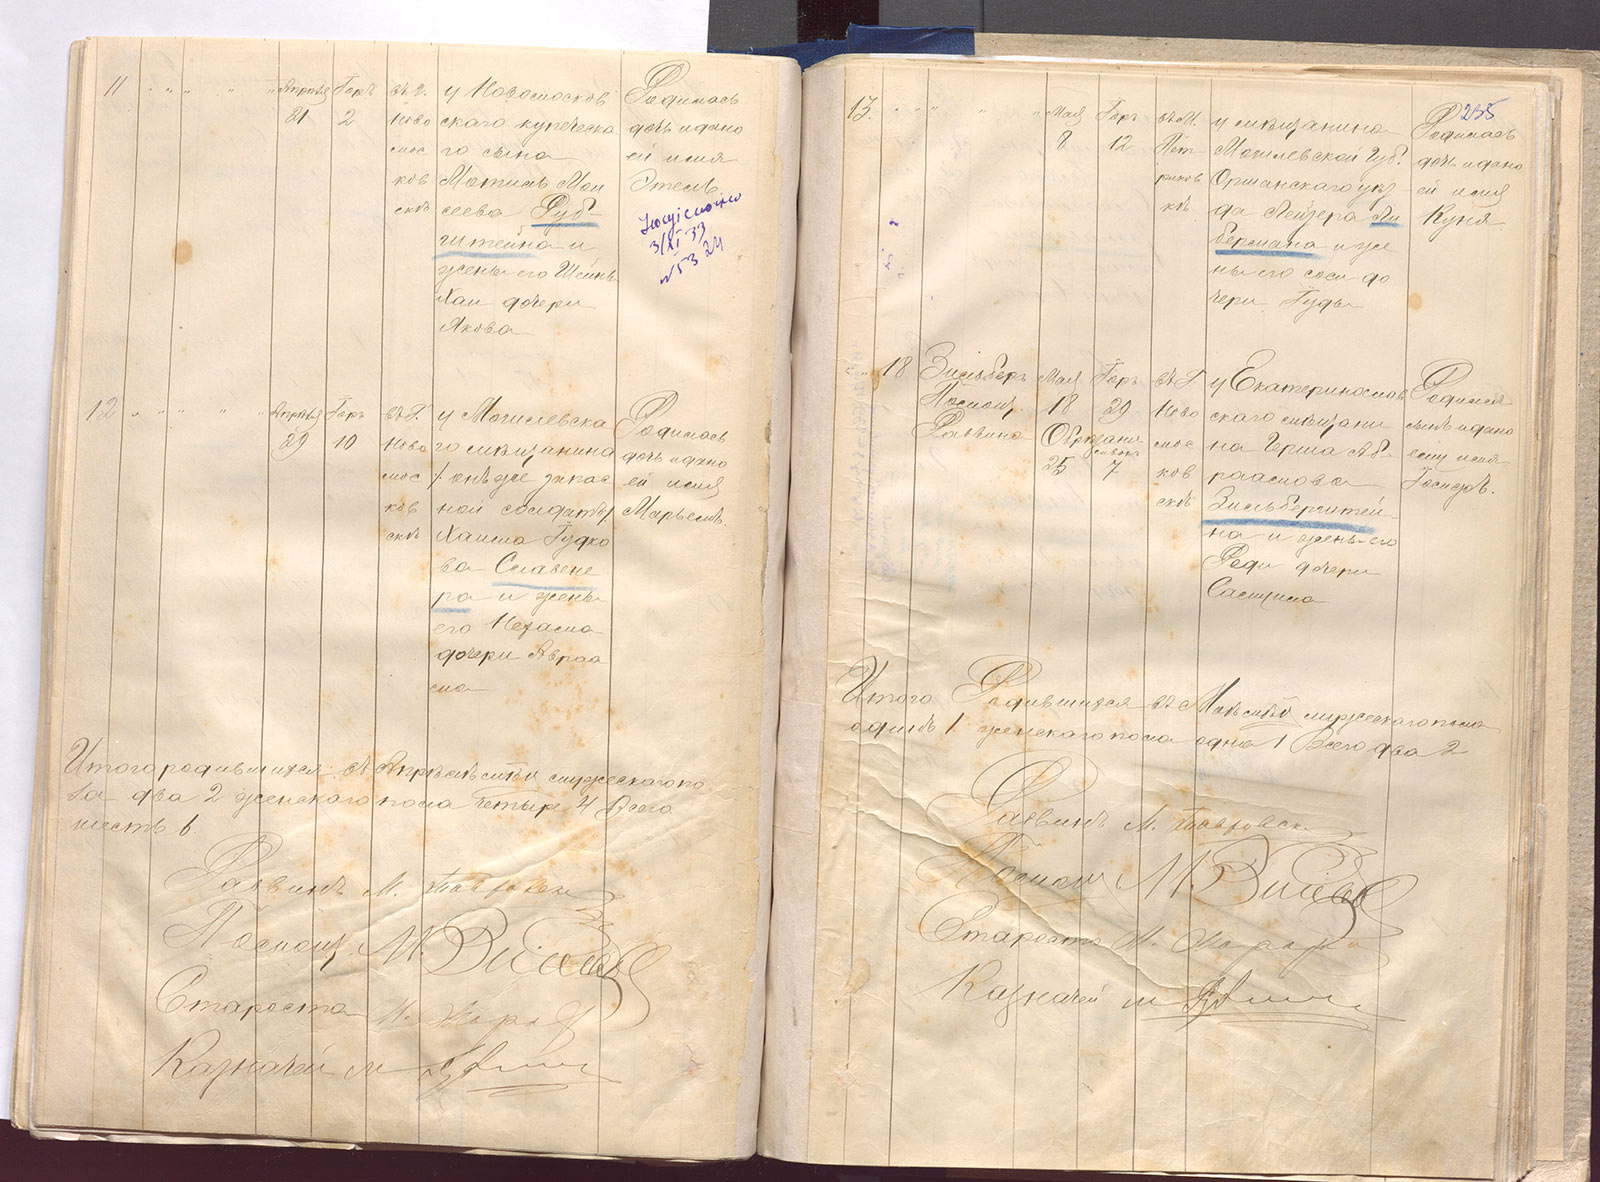 11
Апреля
21
Іоръ
2
въ г.
Ново
мос
ков
скѣ
у Новомосков
скаго купеческа
го сына
Мотиль Мои
сеева Руб-
штейна и
жены его Шейны
Хаи дочери
Якова
Родилась
дочь и дано
ей имя
Этель
3/XI 33
N 53 24
12
Апреля
29
10
въ г.
Ново
мос
ков
скѣ
у Могилевска
го мѣщанина
онъ же запас
ной солдатъ
Хаима Гудко
ва
ра и жены
его Нехама
дочери Авраа
ма
Родилась
дочь и дано
ей имя
Марьемъ.
Итого родившихся въ Апрѣлѣ м-цѣ мужескаго по
ла два 2 женскаго пола четыре 4 Всего
шесть 6
Раввинъ М.
Помощ М.
Староста
Казначей М
235
13.
Мая
8
12
въ М.
Пет
риков
кѣ
у мѣщанина
Могилевской Губ.
Оршанскаго уѣз
да Лейзера Ли
бермана и же
ны его Соси до
чери Гуды
Родилась
дочь и дано
ей имя
Куня
18
Зильберъ
Помощ.
Раввина
Мая
18
29
Обрѣзанъ
25
7
въ г.
Ново
мос
ков
скѣ
у Екатеринослав
скаго мѣщани
на Герша Аб
рамова
Зильберштей
на и жены его
Реди дочери
Самуила
Родился
сынъ и дано
ему имя
Іосифъ.
Итого Родившихся въ Маѣ мужескаго пола
одинъ 1 женскаго пола одна 1 Всего два 2
Раввинъ М.
Помощ М.
Староста
Казначей М